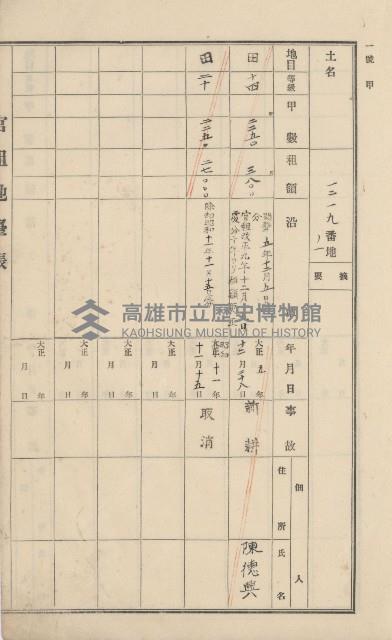 一號甲
土名
一二一九番地
ノ一
摘要
地目
等級
甲數
租額
沿
期
年月日
事故
佃人
住所
氏名
田
十四
二二五〇
三八〇〇
五年十二月五日
官租改正
大正九年十二月二十八日
新耕
陳德興
田
二十
二二五〇
二七〇〇〇
昭和十一年十一月十五日
取消
大正 年 月 日
大正 年 月 日
大正 年 月 日
大正 年 月 日
官租地臺帳
高雄市立歷史博物館
KAOHSIUNG MUSEUM OF HISTORY